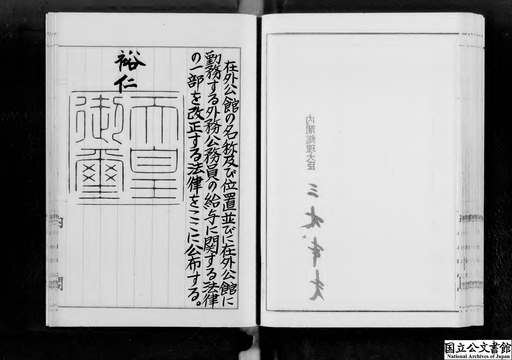 在外公館の名称及び位置並びに在外公館に
勤務する外務公務員の給与に関する法律
の一部を改正する法律をここに公布する。
裕仁
天皇
御璽
内閣
国立公文書館
National Archives of Japan